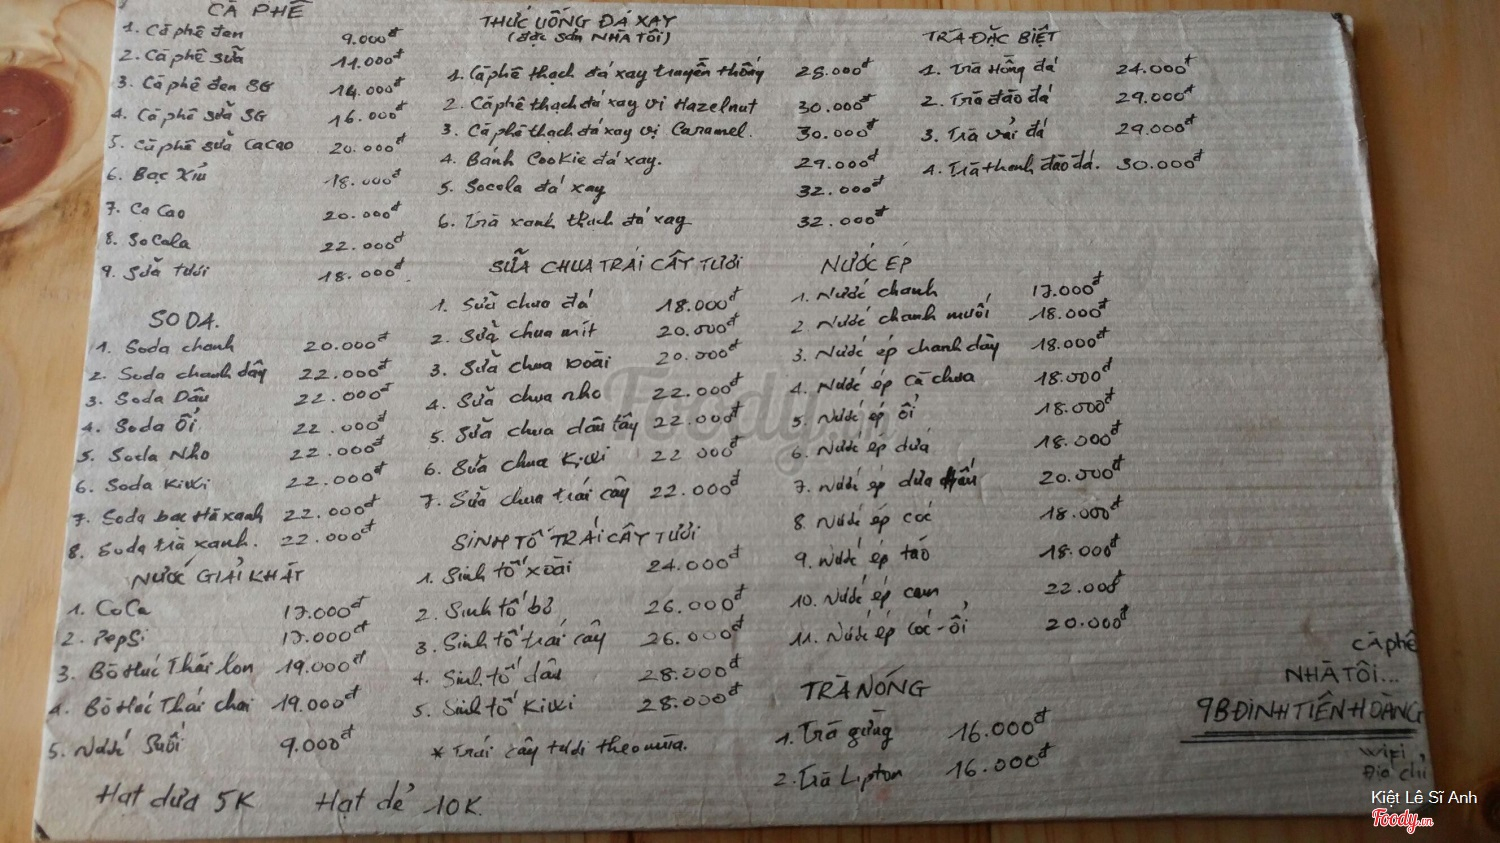 CÀ PHÊ
1. Cà phê đen 9.000đ
2. Cà phê sữa 11.000đ
3. Cà phê đen SG 14.000đ
4. Cà phê sữa SG 16.000đ
5. Cà phê sữa Cacao 20.000đ
6. Bạc xỉu 18.000đ
7. Ca Cao 20.000đ
8. SoCola 22.000đ
9. Sữa tươi 18.000đ
SODA.
1. Soda chanh 20.000đ
2. Soda chanh dây 22.000đ
3. Soda Dâu 22.000đ
4. Soda ổi 22.000đ
5. Soda Nho 22.000đ
6. Soda Kiwi 22.000đ
7. Soda bạc Hà xanh 22.000đ
8. Soda trà xanh. 22.000đ
NƯỚC GIẢI KHÁT
1. CoCa 17.000đ
2. PePSi 17.000đ
3. Bò Húc Thái lon 19.000đ
4. Bò Húc Thái chai 19.000đ
5. Nước Suối 9.000đ
Hạt dưa 5K Hạt dẻ 10K.
THỨC UỐNG ĐÁ XAY
(đặc sản NHÀ TÔI)
1. Cà phê thạch đá xay truyền thống 28.000đ
2. Cà phê thạch đá xay vị Hazelnut 30.000đ
3. Cà phê thạch đá xay vị Caramel. 30.000đ
4. Bánh Cookie đá xay. 29.000đ
5. Socola đá xay 32.000đ
6. Trà xanh thạch đá xay 32.000đ
SỮA CHUA TRÁI CÂY TƯƠI
1. Sữa chua đá 18.000đ
2. Sữa chua mít 20.000đ
3. Sữa chua xoài 20.000đ
4. Sữa chua nho 22.000đ
5. Sữa chua dâu tây 22.000đ
6. Sữa chua Kiwi 22 000đ
7. Sữa chua trái cây 22.000đ
SINH TỐ TRÁI CÂY TƯƠI
1. Sinh tố xoài 24.000đ
2. Sinh tố bơ 26.000đ
3. Sinh tố trái cây 26.000đ
4. Sinh tố dâu 28.000đ
5. Sinh tố Kiwi 28.000đ
* Trái cây tươi theo mùa.
TRÀ ĐẶC BIỆT
1. Trà Hồng đá 24.000đ
2. Trà đào đá 29.000đ
3. Trà vải đá 29.000đ
4. Trà thanh đào đá. 30.000đ
NƯỚC ÉP
1. Nước chanh 17.000đ
2. Nước chanh muối 18.000đ
3. Nước ép chanh dây 18.000đ
4. Nước ép cà chua 18.000đ
5. Nước ép ổi 18.000đ
6. Nước ép dứa 18.000đ
7. Nước ép dưa hấu 20.000đ
8. Nước ép cóc 18.000đ
9. Nước ép táo 18.000đ
10. Nước ép cam 22.000đ
11. Nước ép cóc-ổi 20.000đ
TRÀ NÓNG
1. Trà gừng 16.000đ
2. Trà Lipton 16.000đ
Cà phê
NHÀ TÔI...
9B ĐINH TIÊN HOÀNG
Wifi
Địa chỉ
Foody.vn
Kiệt Lê Sĩ Anh
Foody.vn